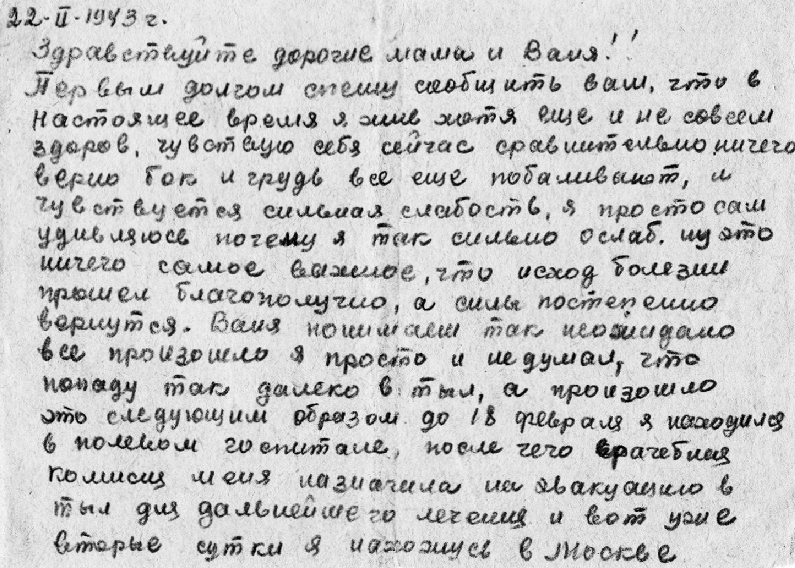 22-II-1943 г.
Здравствуйте дорогие мама и Ваня!!
Первым долгом спешу сообщить вам, что в
настоящее время я жив хотя еще и не совсем
здоров, чувствую себя сейчас сравнительно ничего
верно бок и грудь все еще побаливают, и
чувствуется сильная слабость, я просто сам
удивляюсь почему я так сильно ослаб. ну это
ничего самое важное, что исход болезни
прошел благополучно, а силы постепенно
вернутся. Ваня понимаеш так неожидано
все произошло я просто и не думал, что
попаду так далеко в тыл, а произошло
это следующим образом до 18 февраля я находился
в полевом госпитале, после чего врачебная
комисия меня назначила на эвакуацию в
тыл для дальнейшего лечения и вот уже
вторые сутки я нахожусь в Москве